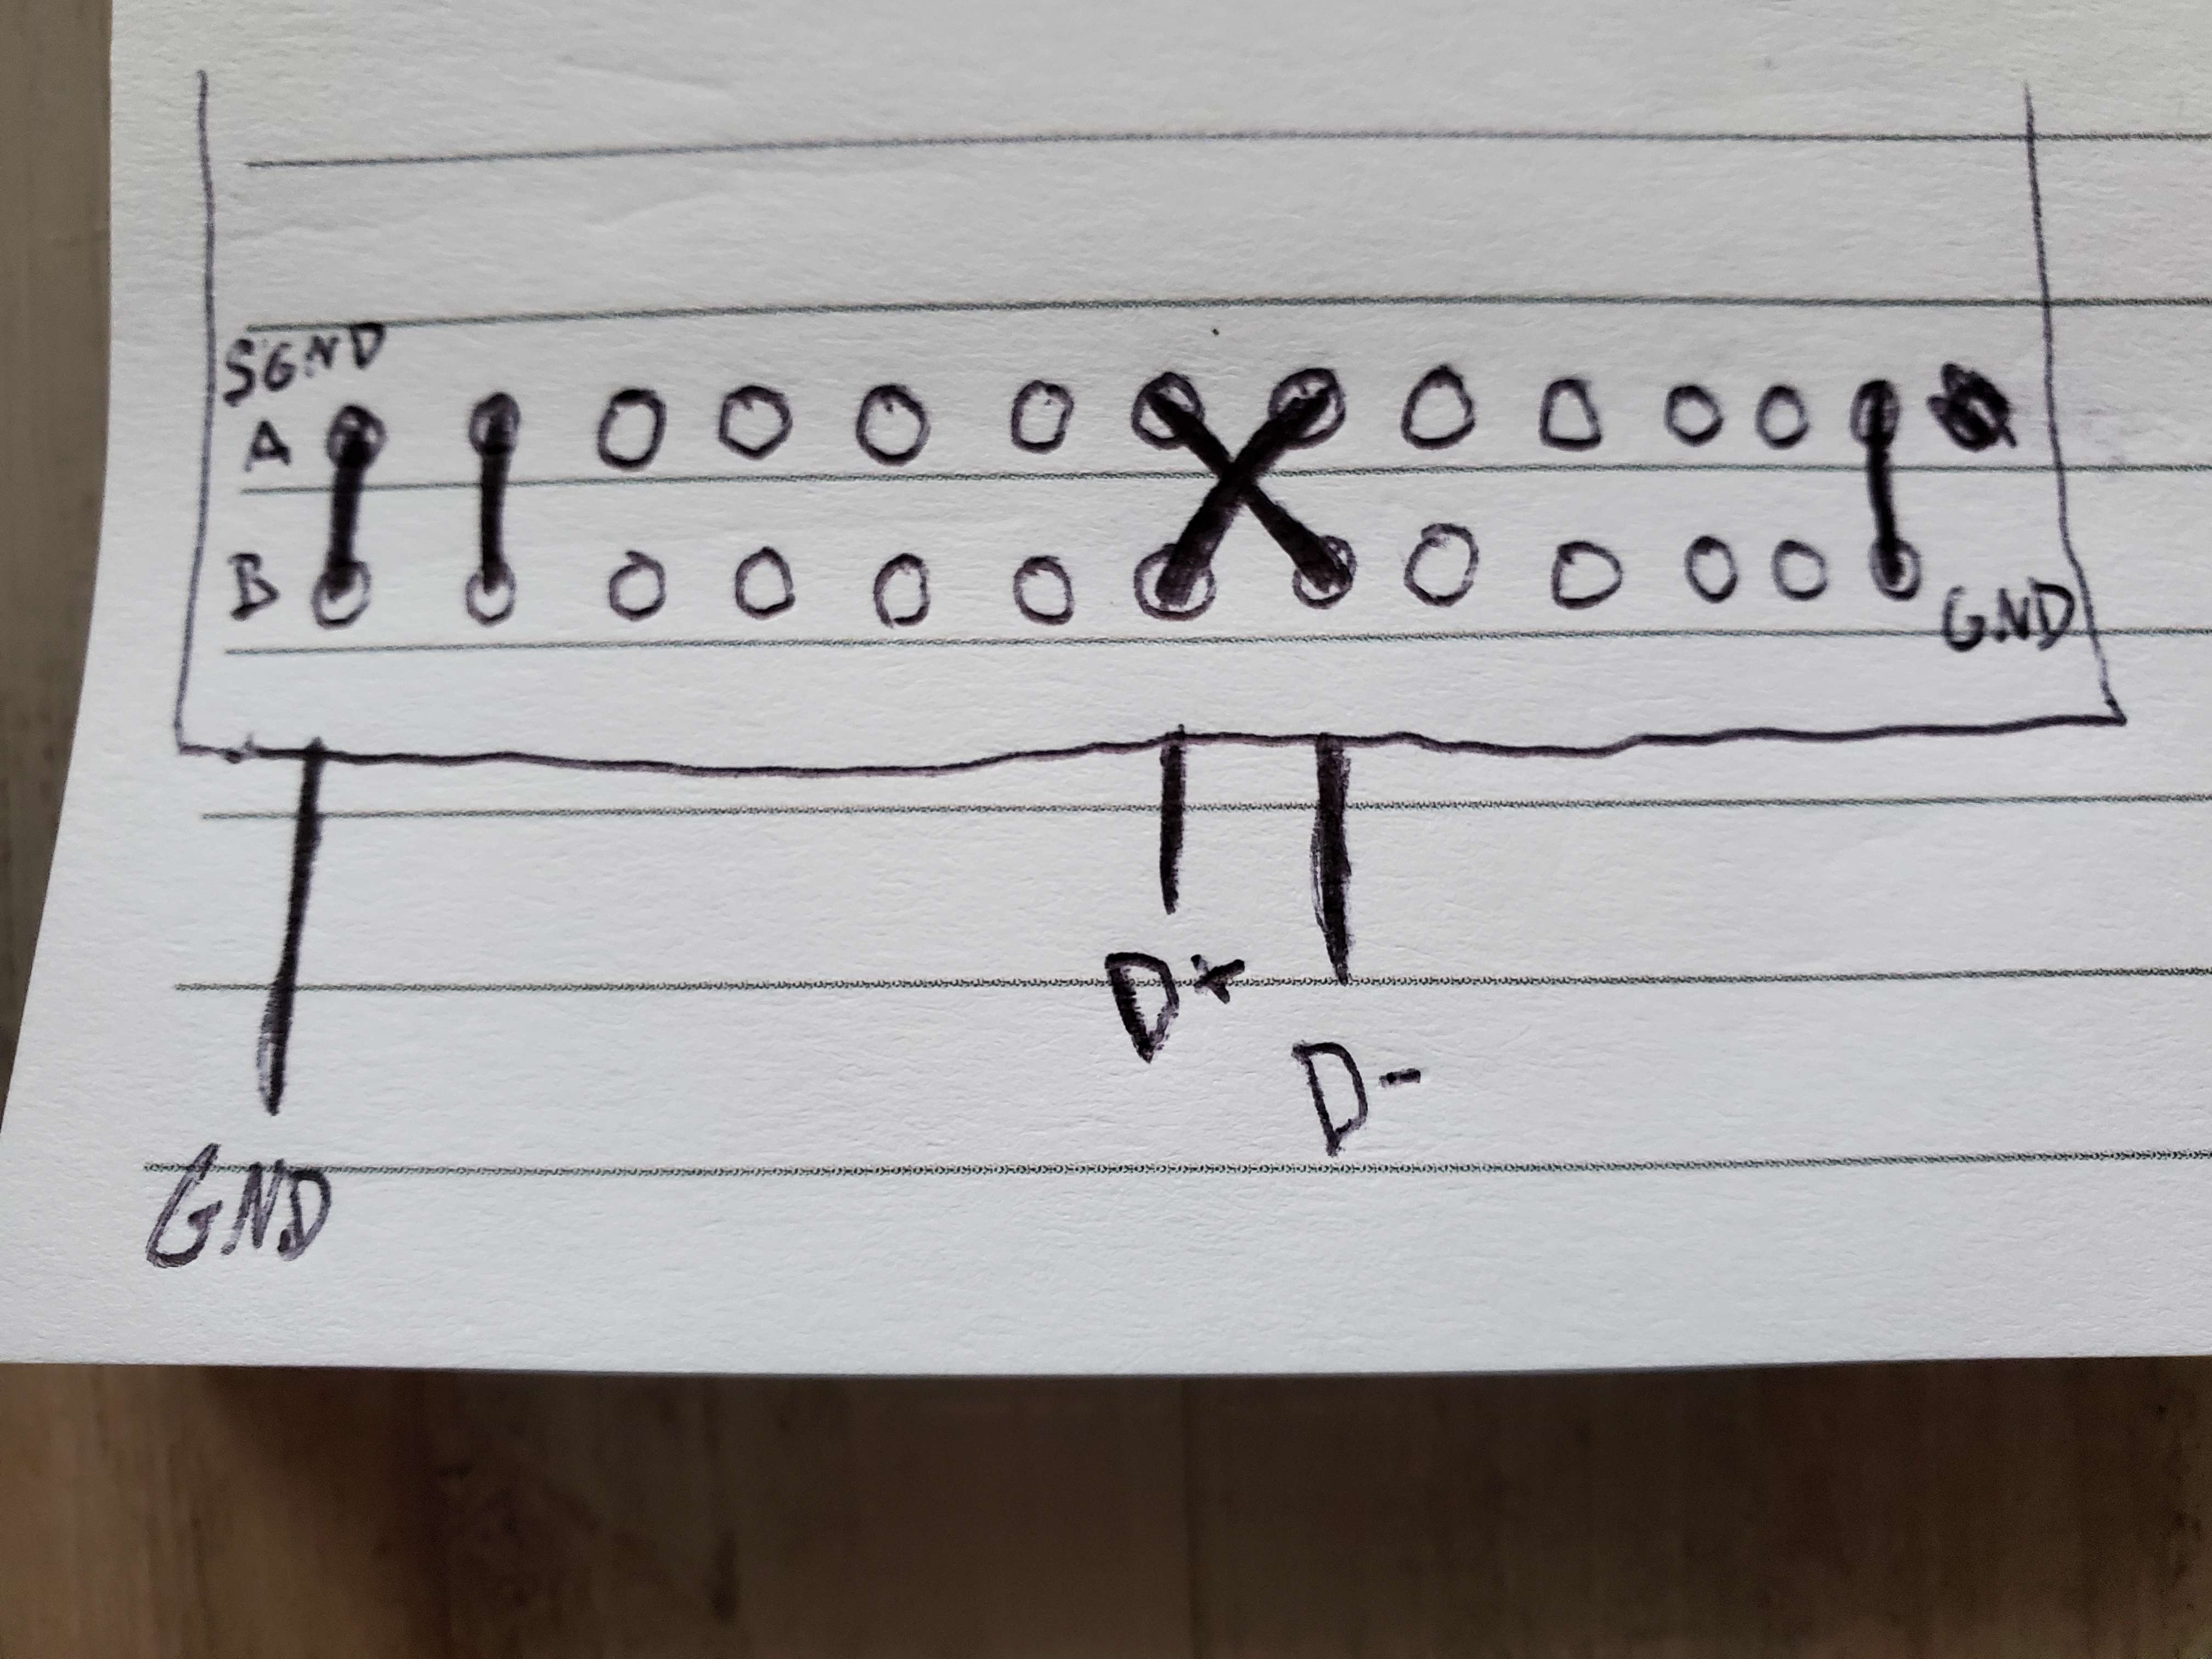 SGND
A
B
GND
D+
D-
GND